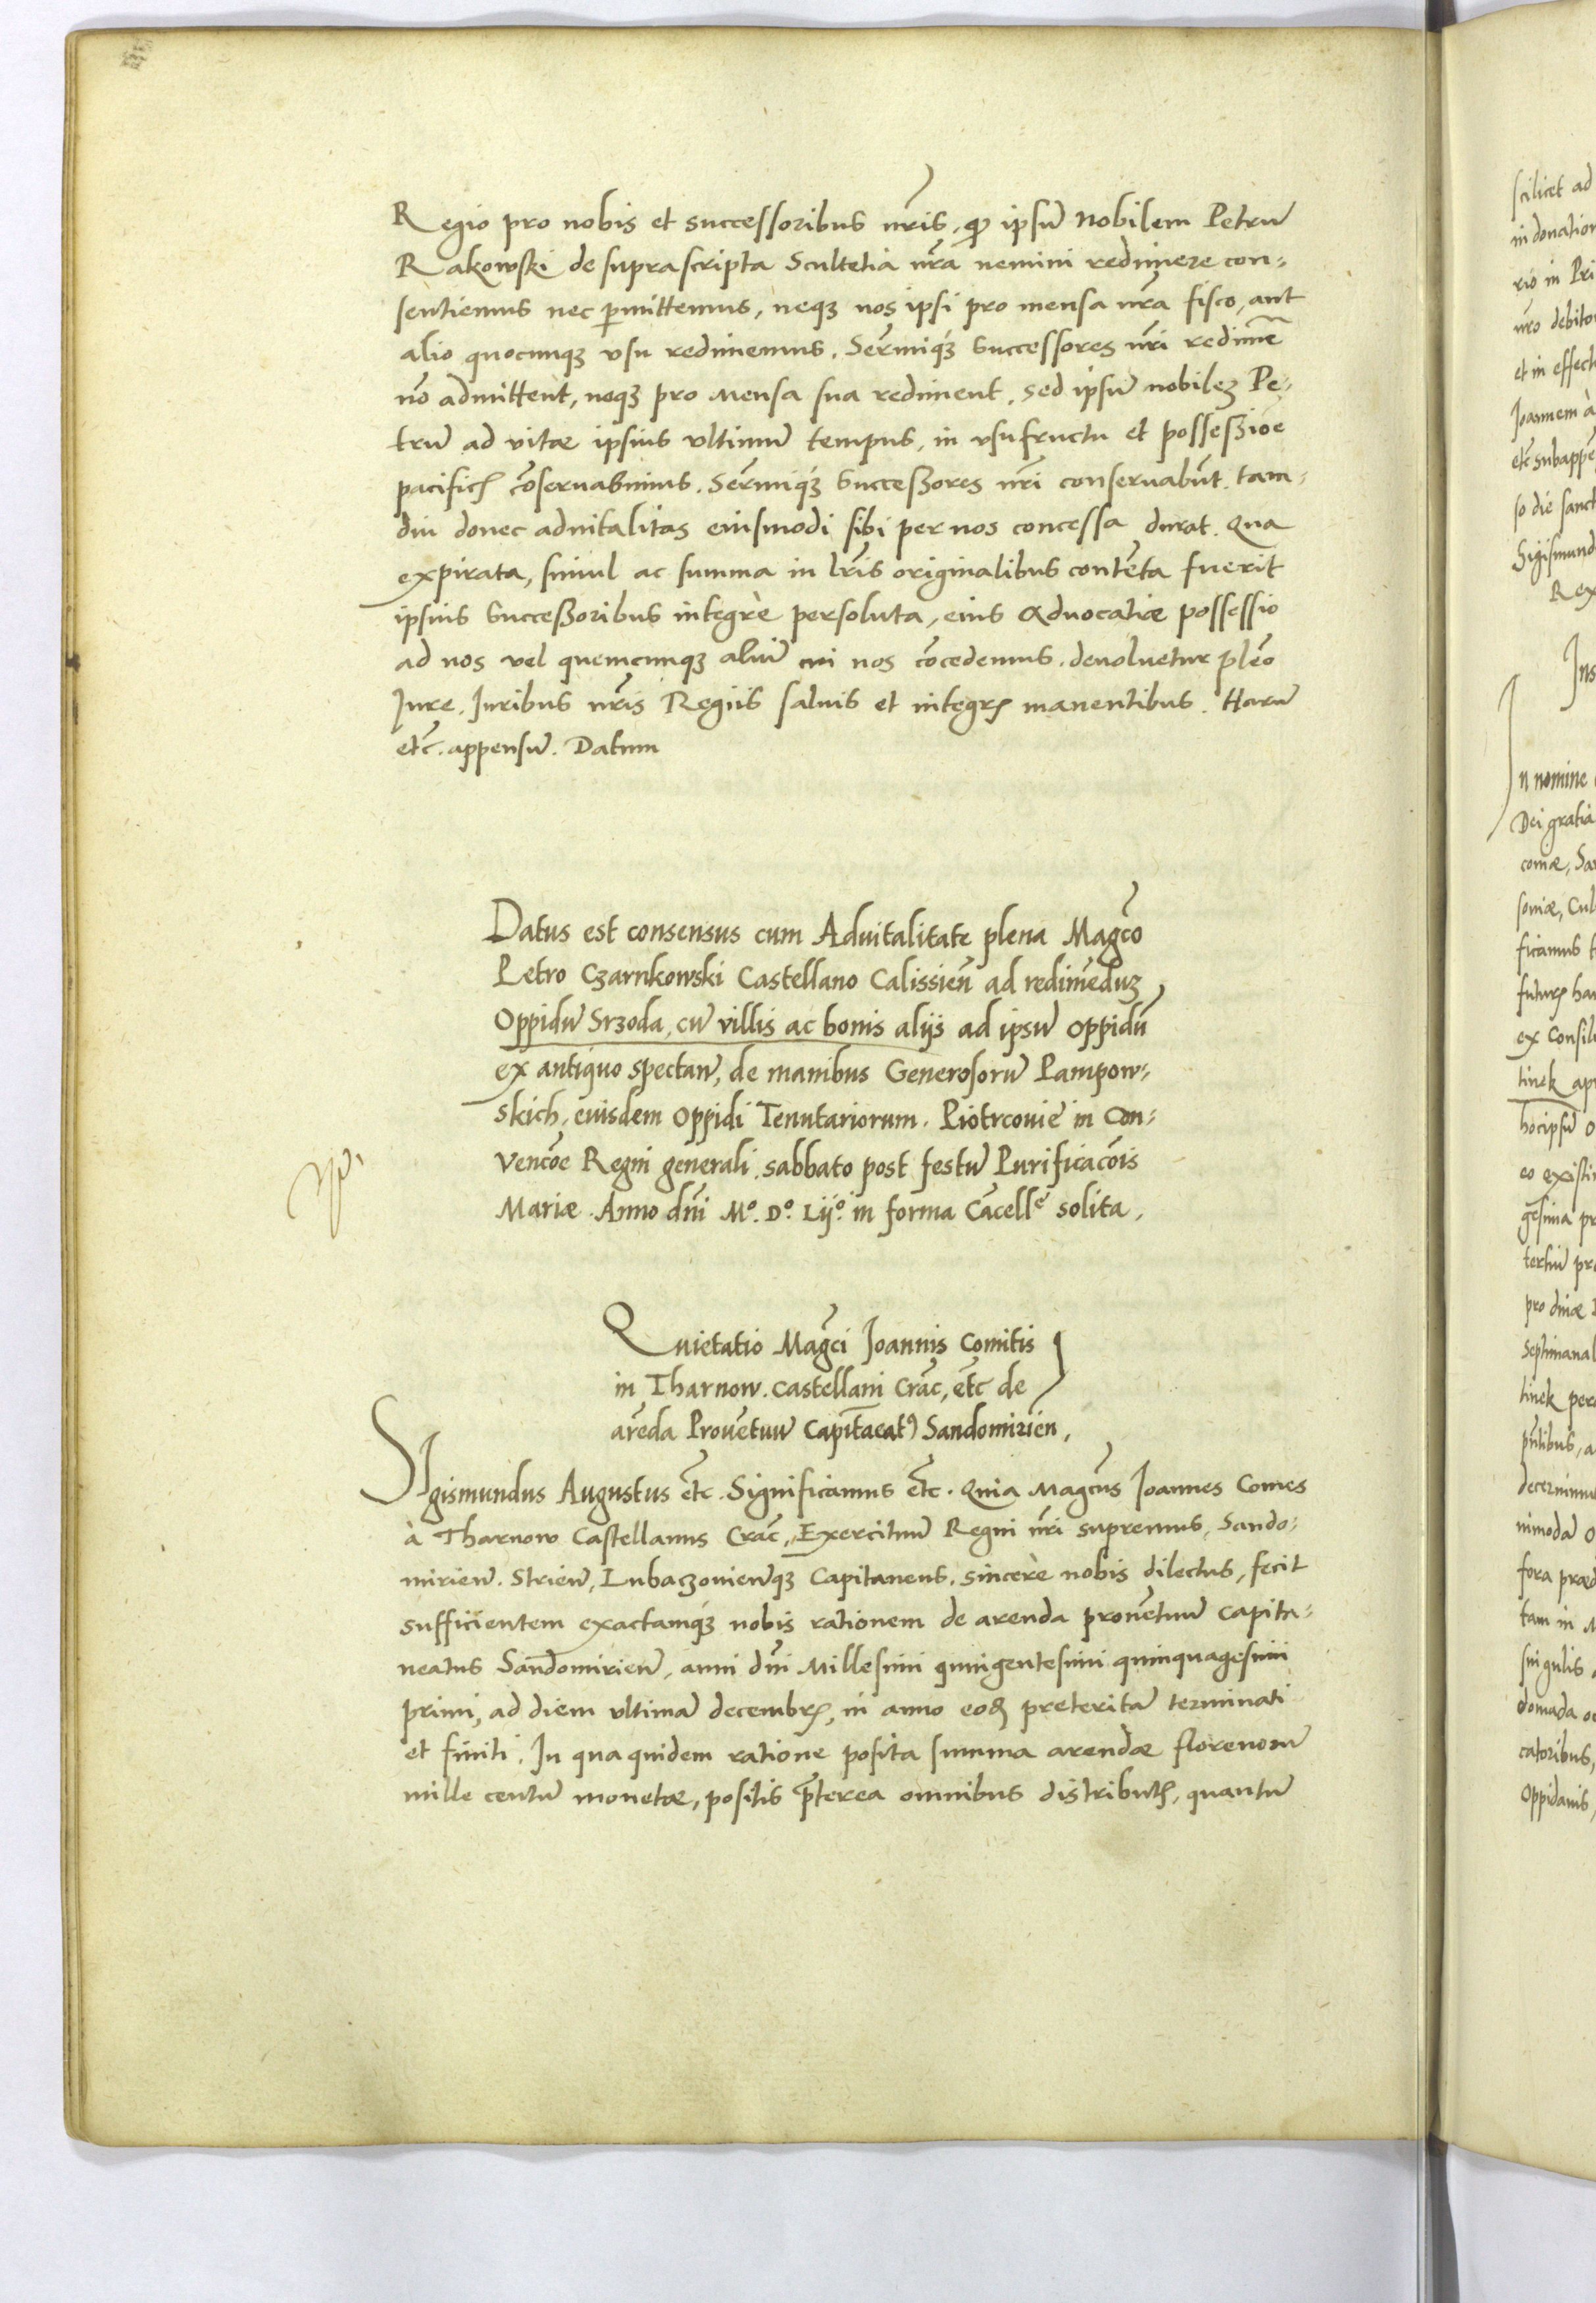 Regio pro nobis et successoribus nr̃is, qp̱ ipsũ nobilem Petrũ
Rakowski de suprascripta Scultetia nr̃a nemini redimere con-
sentiemus nec p̱mittemus, neqȝ nos ipsi pro mensa nr̃a fisco, aut
alio quocunqȝ vsu redimemus. Sermiqȝ Successores nr̃i redimẽ
nõ admittent, neqȝ pro Mensa sua rediment, sed ipsũ nobilẽ Pe-
trũ ad vitae ipsius vltimũ tempus, in vsufructu et possessiõe
pacificꝭ cõseruabimus. Sermiqȝ Successores nr̃i conseruabũt. tam-
diu donec aduitalitas eiusmodi sibi per nos concessa durat. Qua
expirata, simul ac summa in lr̃is originalibus contẽta fuerit
ipsius Successoribus integrè persoluta, eius Aduocatiæ possessio
ad nos vel quemcunqȝ aliũ cui nos cõcedemus. deuoluetur plẽo
Jure. Juribus nr̃is Regiis saluis et integrꝭ manentibus. Harũ
etc̃. appensũ. Datum
Datus est consensus cum Aduitalitate plena Mag̃co
Petro Czarnkowski Castellano Calissieñ ad redimẽduȝ
Oppidũ Srzoda, cũ villis ac bonis aliis ad ipsũ oppidũ
ex antiquo spectañ, de manibus Generosorũ Pampow-
skich, euisdem Oppidi Tenutariorum. Piotrcouie in Con-
vencõe Regni generali. sabbato post festũ Purificacõis
Mariæ. Anno dñi Mº. Dº. Lijº. in forma Cãcelle solita,
Quietatio Mag̃ci Joannis Comitis
in Tharnow. Castellani Crac̃, etc̃ de
arẽda Prouẽtuũ Capitãeatꝰ Sandomirieñ,
Sigismundus Augustus etc̃. Significamus etc̃. Quia Mag̃cus Joannes Comes
à Tharnow Castellanus Crac̃, Exercituũ Regni nr̃i supremus, Sando-
mirieñ. Strieñ, Lubaczouieñqȝ Capitaneus. sincerè nobis dilectus, fecit
sufficientem exactamqȝ nobis rationem de arenda prouẽtuũ capita-
neatus Sandomirieñ, anni dñi Millesimi quingentesimi quinquagesimi
primi, ad diem vltimã decembrꝭ, in anno eoꝺ preteritã terminati
et finiti. In qua quidem ratione posita summa arendæ florenorũ
mille centũ monetæ, positis p̃terea omnibus distributꝭ, quantũ